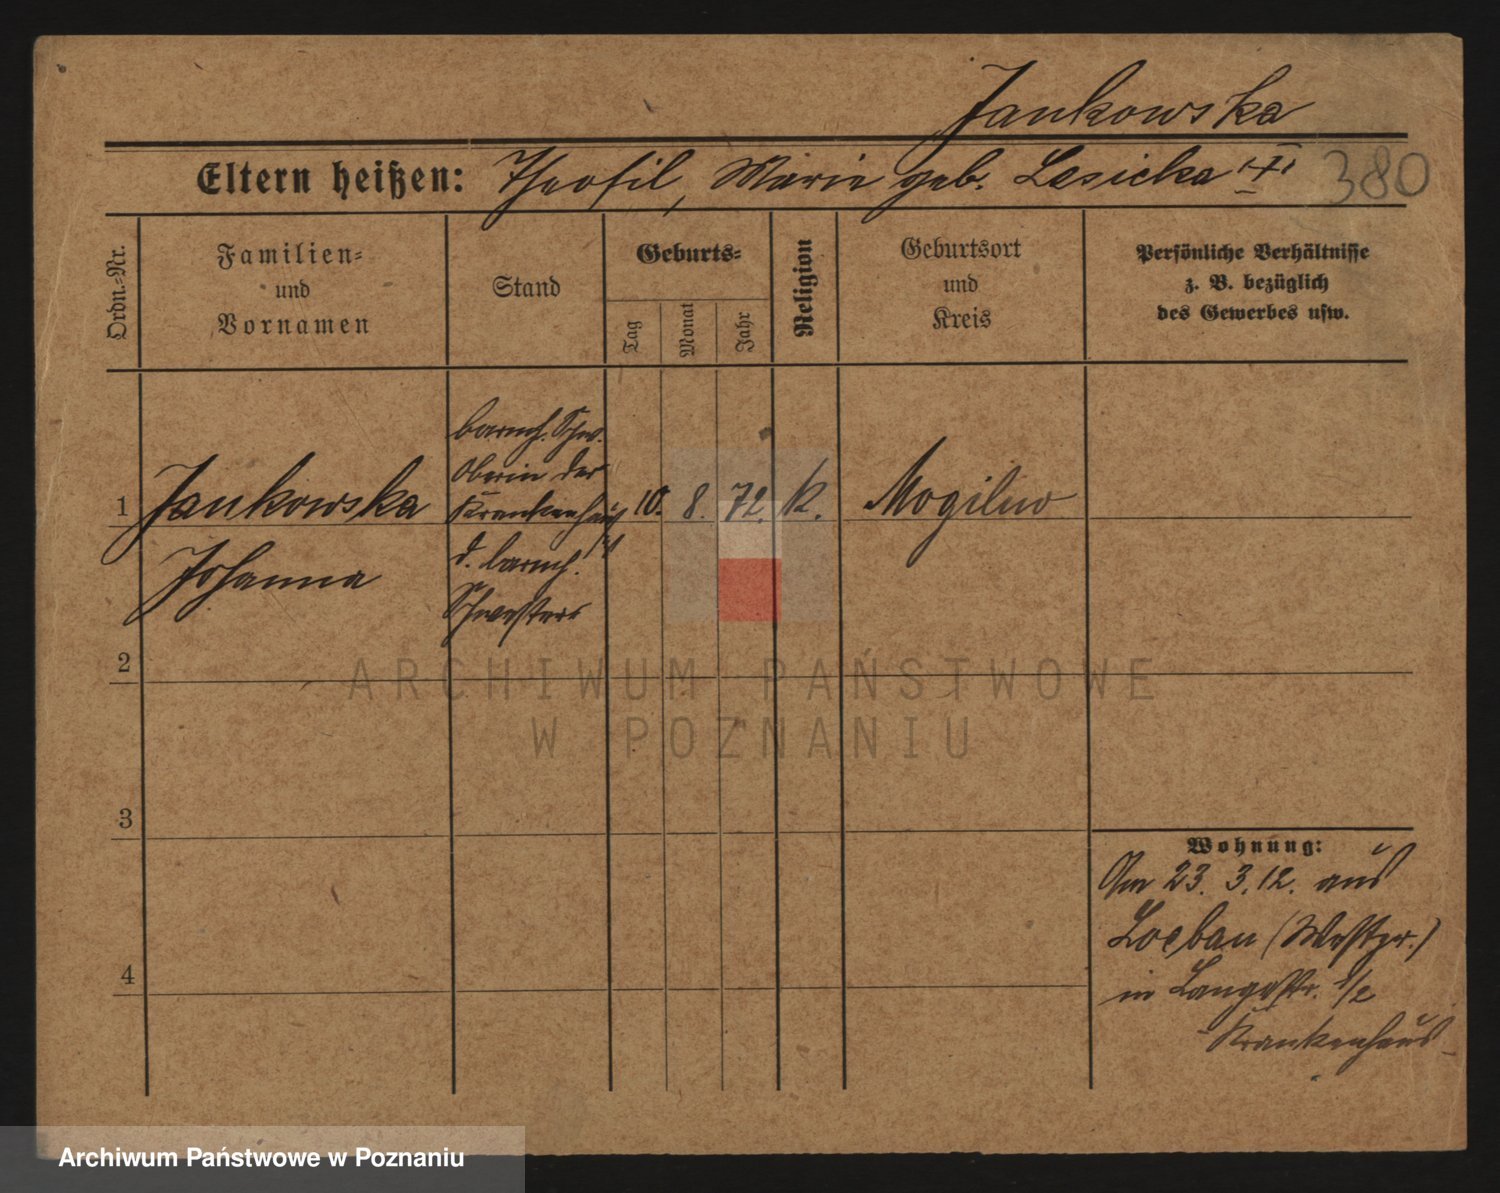 Jankowska
Eltern heißen: Theofil, Marie geb. Lesicka 380
Ordn.-Nr.
Familien-
und
Vornamen
Stand
Geburts-
Tag
Monat
Jahr
Religion
Geburtsort
und
Kreis
Persönliche Verhältnisse
z. B. bezüglich
des Gewerbes usw.
barmh. Schw.
Oberin der
1 Jankowska Krankenhaus 10. 8. 72. k. Mogilno
Johanna d. barmh.
Schwestern
2
ARCHIWUM PAŃSTWOWE
W POZNANIU
3
Wohnung:
Am 23. 3. 12. aus
Loebau (Westpr.)
in Langestr. 1/2
4
Krankenhaus
Archiwum Państwowe w Poznaniu